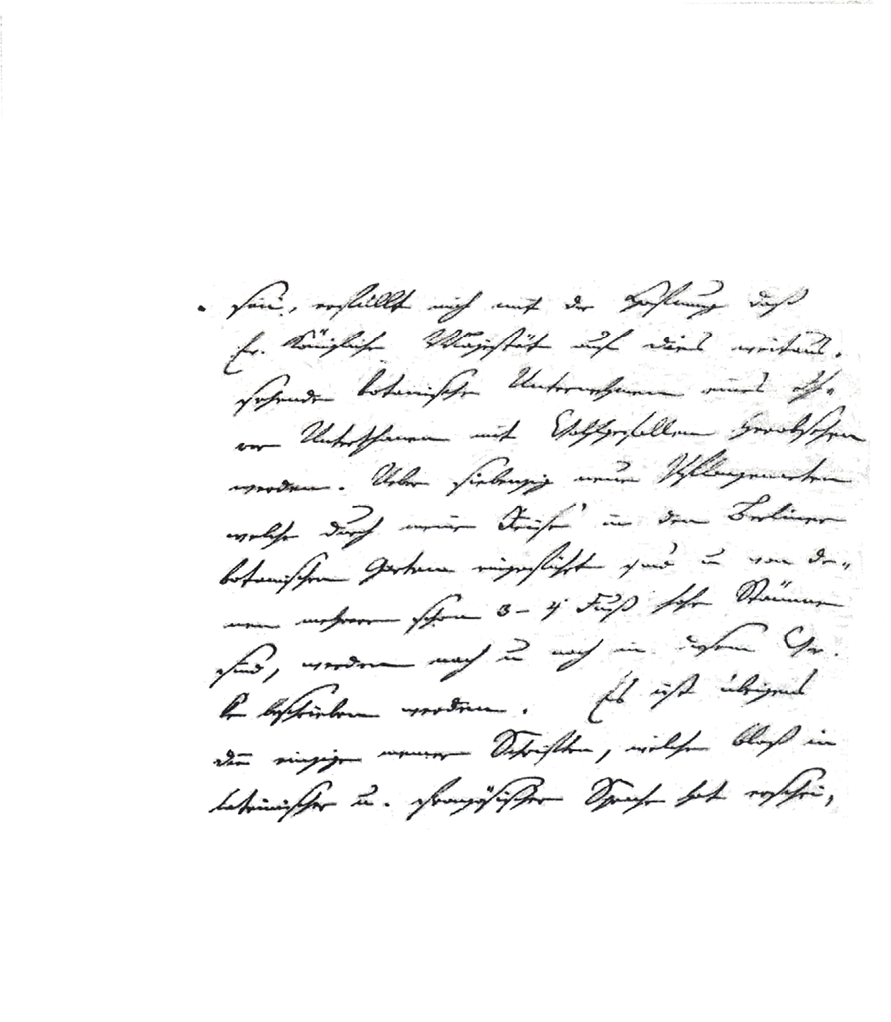 sein, erfüllt mich mit der Hoffnung daß
Ew. Königliche Majestät auf dies weitaus-
sehende botanische Unternehmen eines Ih-
rer Unterthanen mit Wohlgefallen herabsehen
werden. Ueber siebenzig neue Pflanzenarten
welche durch meine Reise in den Berliner
botanischen Garten eingeführt sind u von de-
nen mehrere schon 3-4 Fuß hohe Stämme
sind, werden nach u nach in diesem Wer-
ke beschrieben werden. Es ist übrigens
die einzige meiner Schriften, welche bloß in
lateinischer u. französischer Sprache hat erschei-